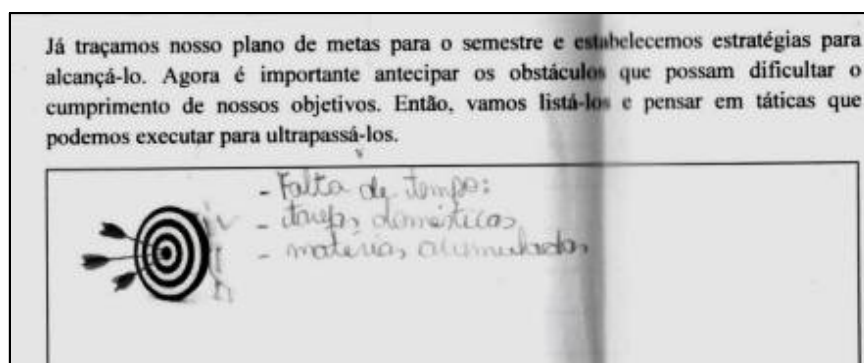 Já traçamos nosso plano de metas para o semestre e estabelecemos estratégias para
alcançá-lo. Agora é importante antecipar os obstáculos que possam dificultar o
cumprimento de nossos objetivos. Então, vamos listá-los e pensar em táticas que
podemos executar para ultrapassá-los.
- Falta de tempo:
- tarefas domésticas
- matérias acumuladas